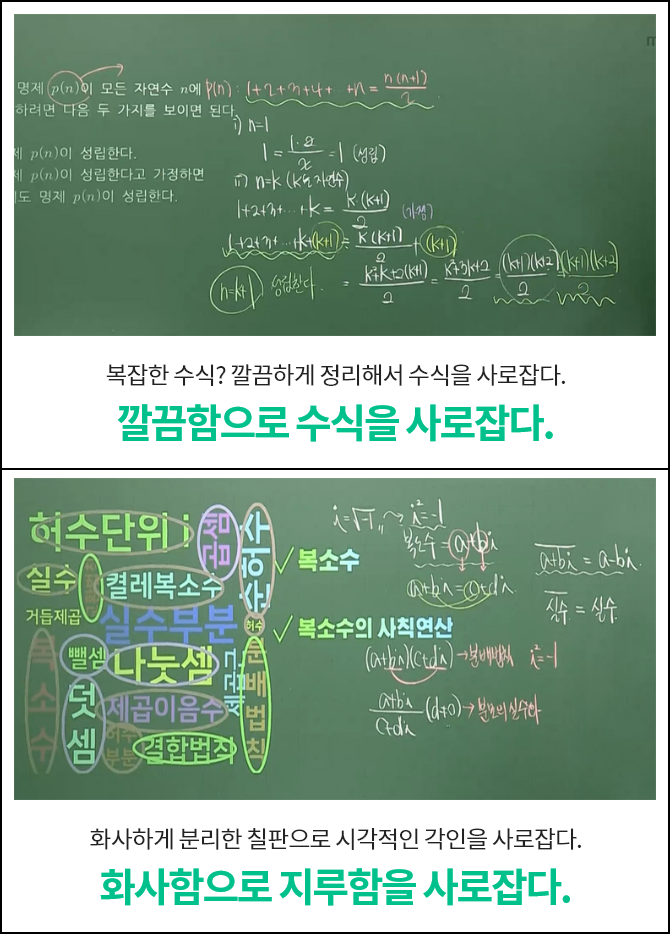 명제 p(n)이 모든 자연수 n에 p(n) : 1+2+3+4+ ‥ +n = n(n+1)/2
하려면 다음 두 가지를 보이면 된다.
i) n=1
1 = 1·2/2 = 1 (성립)
제 p(n)이 성립한다.
ii) n=k (k는 자연수)
제 p(n)이 성립한다고 가정하면
1+2+3+ ‥ +k = k(k+1)/2 (가정)
도 명제 p(n)이 성립한다.
1+2+3+ ‥ +k+(k+1) = k(k+1)/2 + (k+1)
n=k+1 성립한다. = k²+k+2(k+1)/2 = k²+3k+2/2 = (k+1)(k+2)/2 = (k+1)(k+2)/2
복잡한 수식? 깔끔하게 정리해서 수식을 사로잡다.
깔끔함으로 수식을 사로잡다.
허수단위 i
곱셈
순허수
실수
켤레복소수
거듭제곱
실수부분
허수
복소수
뺄셈
나눗셈
세제곱근
분배법칙
덧셈
제곱이음수
허수부분
결합법칙
✓ 복소수
✓ 복소수의 사칙연산
i=√-1 i²=-1
복소수 = a+bi
a+bi = c+di
(a+bi)(c+di) → 분배법칙 i²=-1
a+bi/c+di (d≠0) → 분모의 실수화
a+bi = a-bi
실수 = 실수
화사하게 분리한 칠판으로 시각적인 각인을 사로잡다.
화사함으로 지루함을 사로잡다.